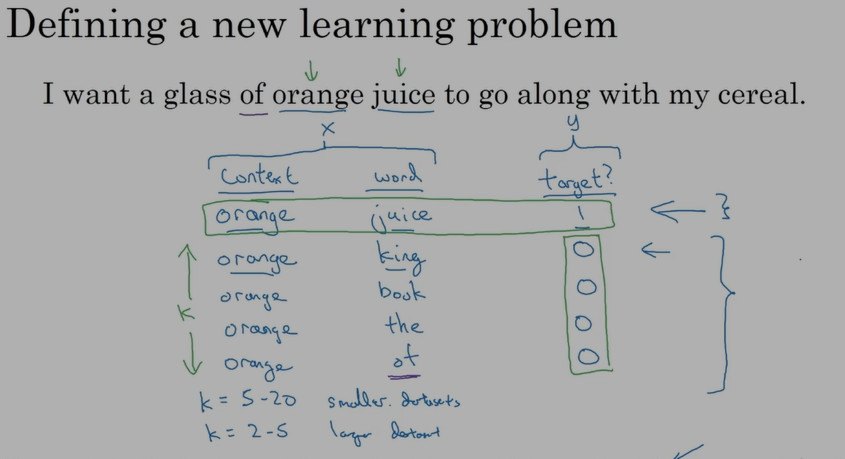 Defining a new learning problem
I want a glass of orange juice to go along with my cereal.
x y
Context word target?
orange juice 1
orange king 0
k
orange book 0
orange the 0
orange of 0
k = 5-20 smaller datasets
k = 2-5 larger dataset